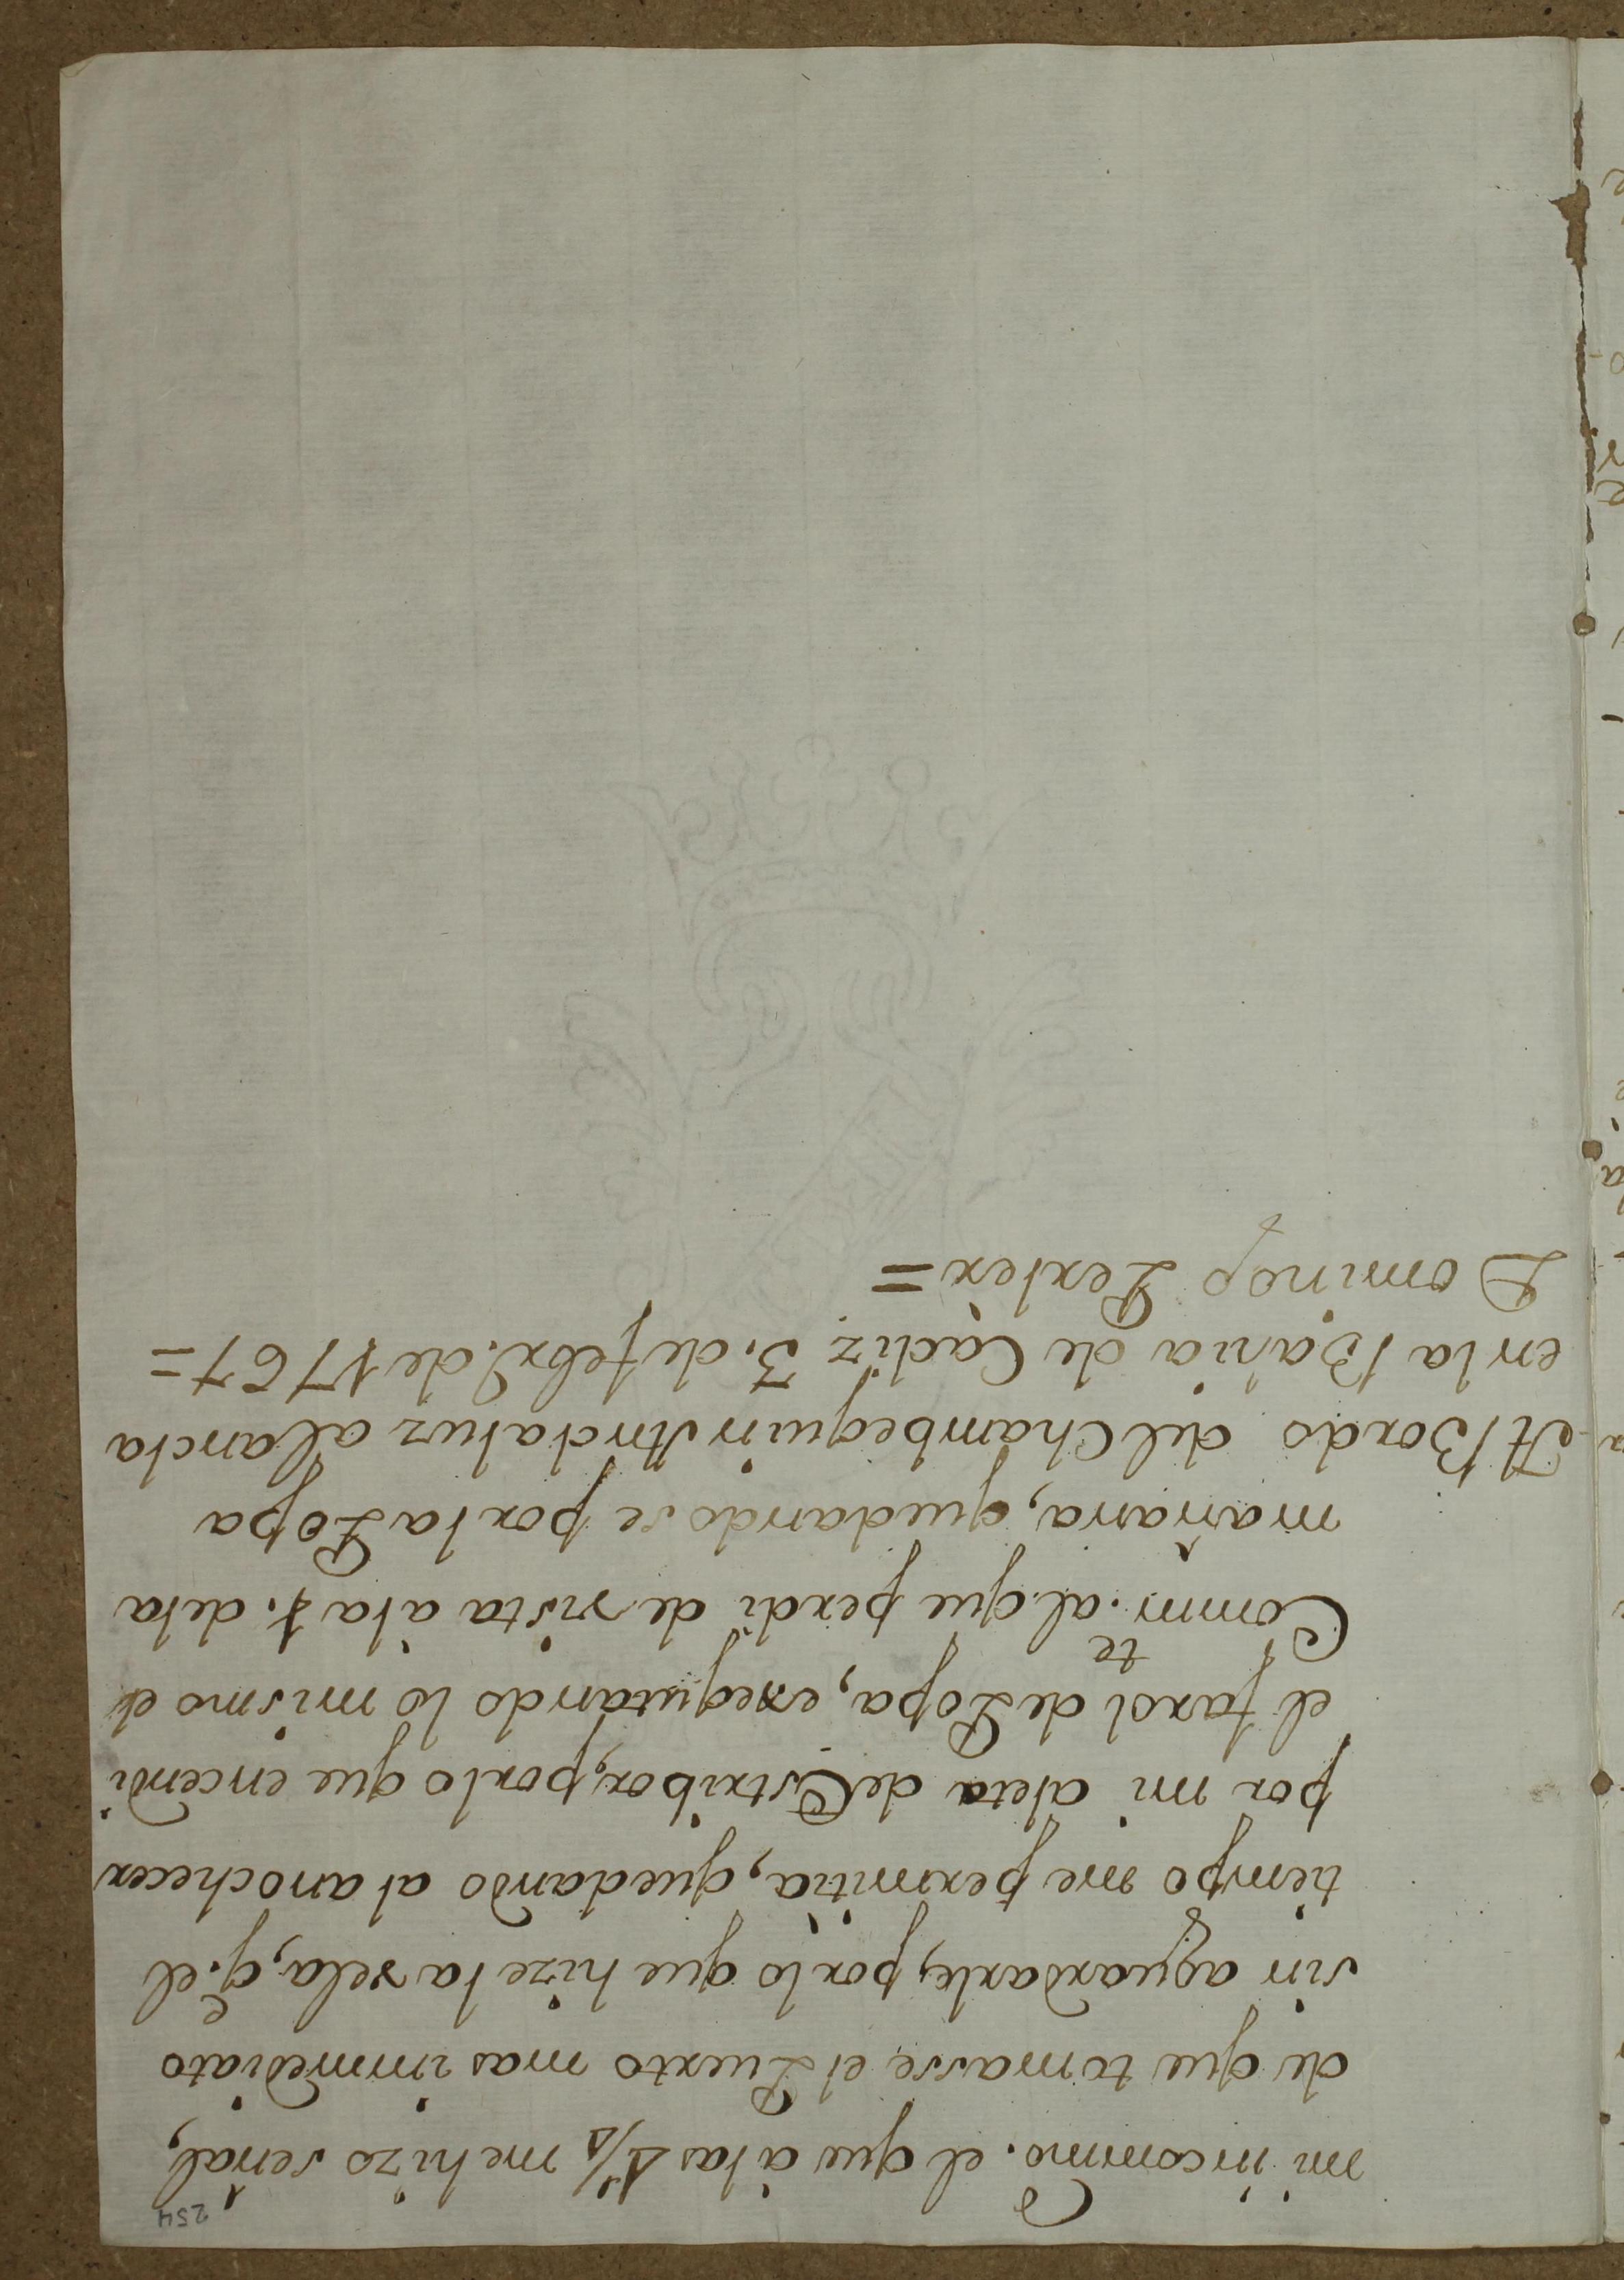 254
mi incommo.do el que à las 4½ me hizo señal,
de que tomasse el Puerto mas immediato
sin aguardarle, por lo que hize la vela, q.e el
tiempo me permitia, quedando al anochecer
por mi aleta de Estribor, por lo que encendi
el farol de Popa, exequtando lo mismo el
Comm.te al que perdi de vista à la 1. de la
mañana, quedandose por la Popa
A Bordo del Chambequin Andaluz al ancla
en la Bahia de Cadiz 3. de febr.o de 1767 =
Domingo Perler =